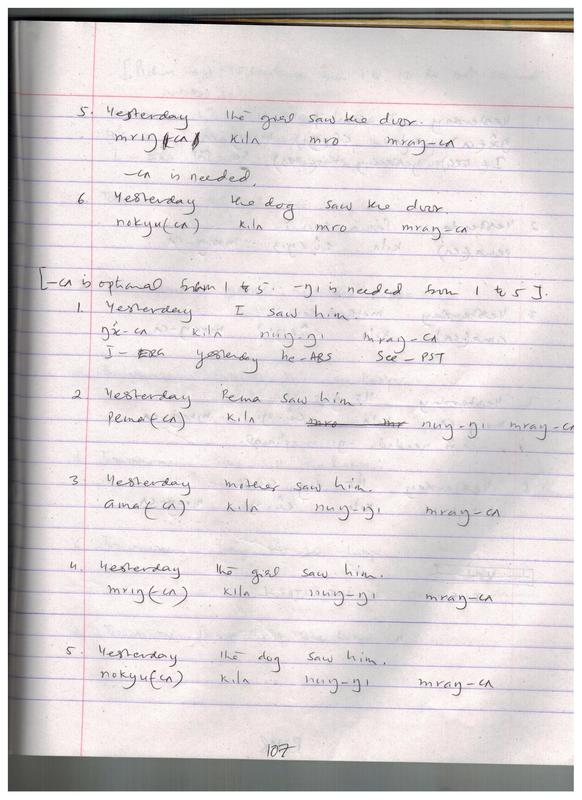 5. Yesterday the girl saw the door.
mrıŋ(-cʌ) kilʌ mro mraŋ-cʌ
-cʌ is needed.
6. Yesterday the dog saw the door.
nokyu(-cʌ) kilʌ mro mraŋ-cʌ
[-cʌ is optional from 1 to 5. -ŋı is needed from 1 to 5].
1. Yesterday I saw him.
-cʌ kilʌ nuŋ-ŋı mraŋ-cʌ
I-ERG yesterday he-ABS See-PST
2 Yesterday Pema saw him.
Pema(-cʌ) kilʌ nuŋ-ŋı mraŋ-cʌ
3 Yesterday mother saw him.
ama(-cʌ) kilʌ nuŋ-ŋı mraŋ-cʌ
4. Yesterday the girl saw him.
mrıŋ(-cʌ) kilʌ nuŋ-ŋı mraŋ-cʌ
5. Yesterday the dog saw him.
nokyu(-cʌ) kilʌ nuŋ-ŋı mraŋ-cʌ
107